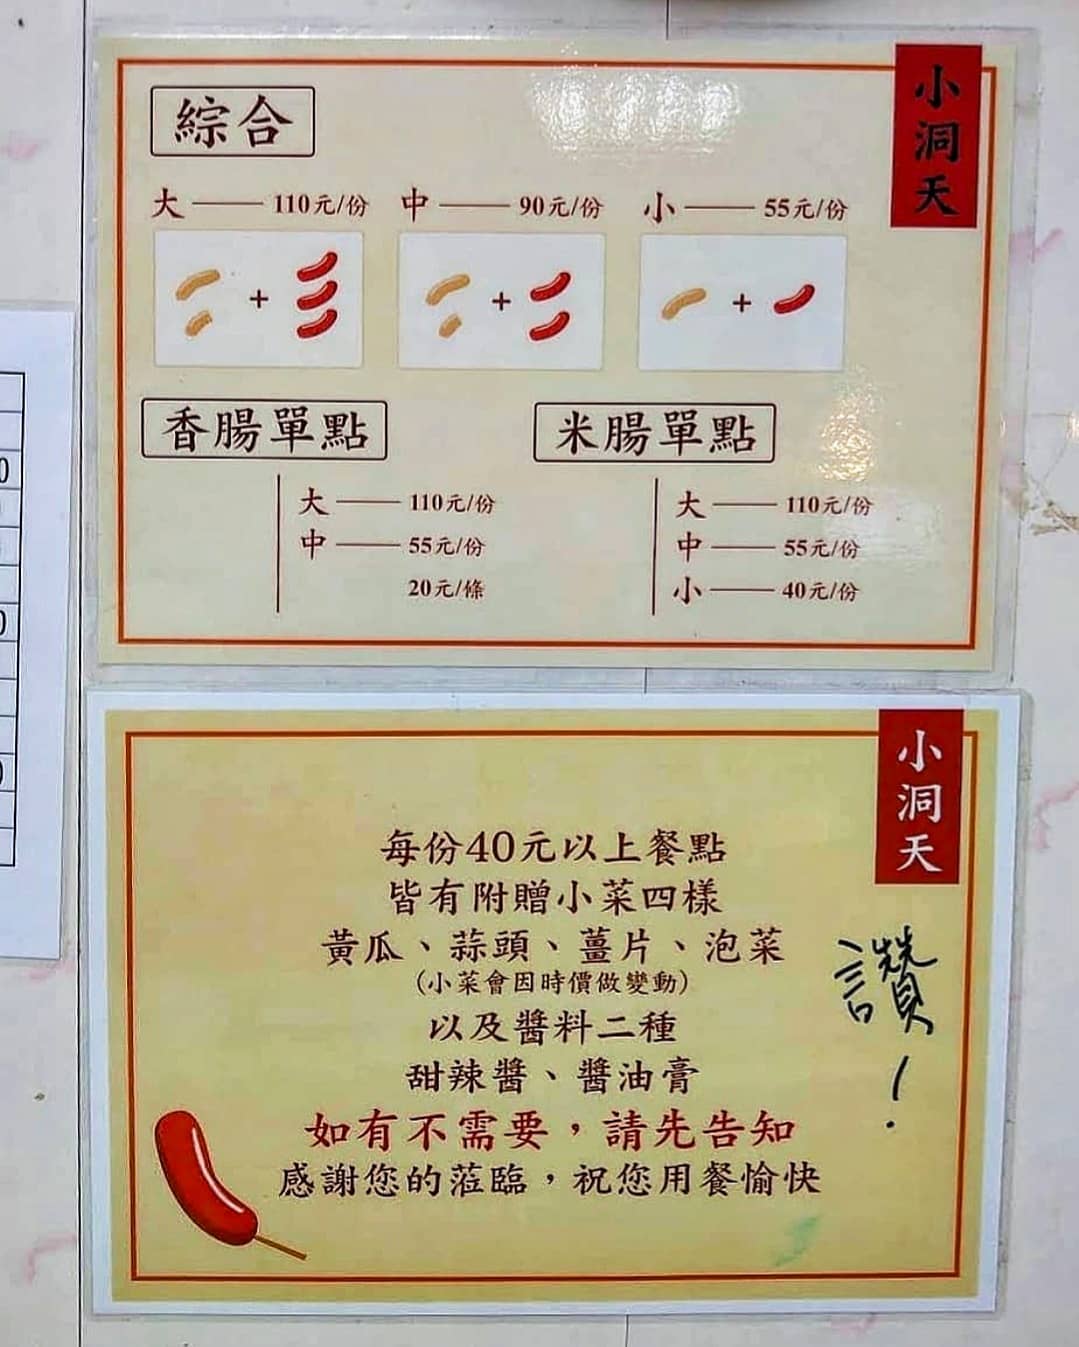 小洞天
綜合
大 —— 110元/份 中 —— 90元/份 小 —— 55元/份
+ + +
香腸單點 米腸單點
大 —— 110元/份 大 —— 110元/份
中 —— 55元/份 中 —— 55元/份
20元/條 小 —— 40元/份
小洞天
每份40元以上餐點
皆有附贈小菜四樣
黃瓜、蒜頭、薑片、泡菜
(小菜會因時價做變動)
以及醬料二種
甜辣醬、醬油膏
如有不需要，請先告知
感謝您的蒞臨，祝您用餐愉快
讚！